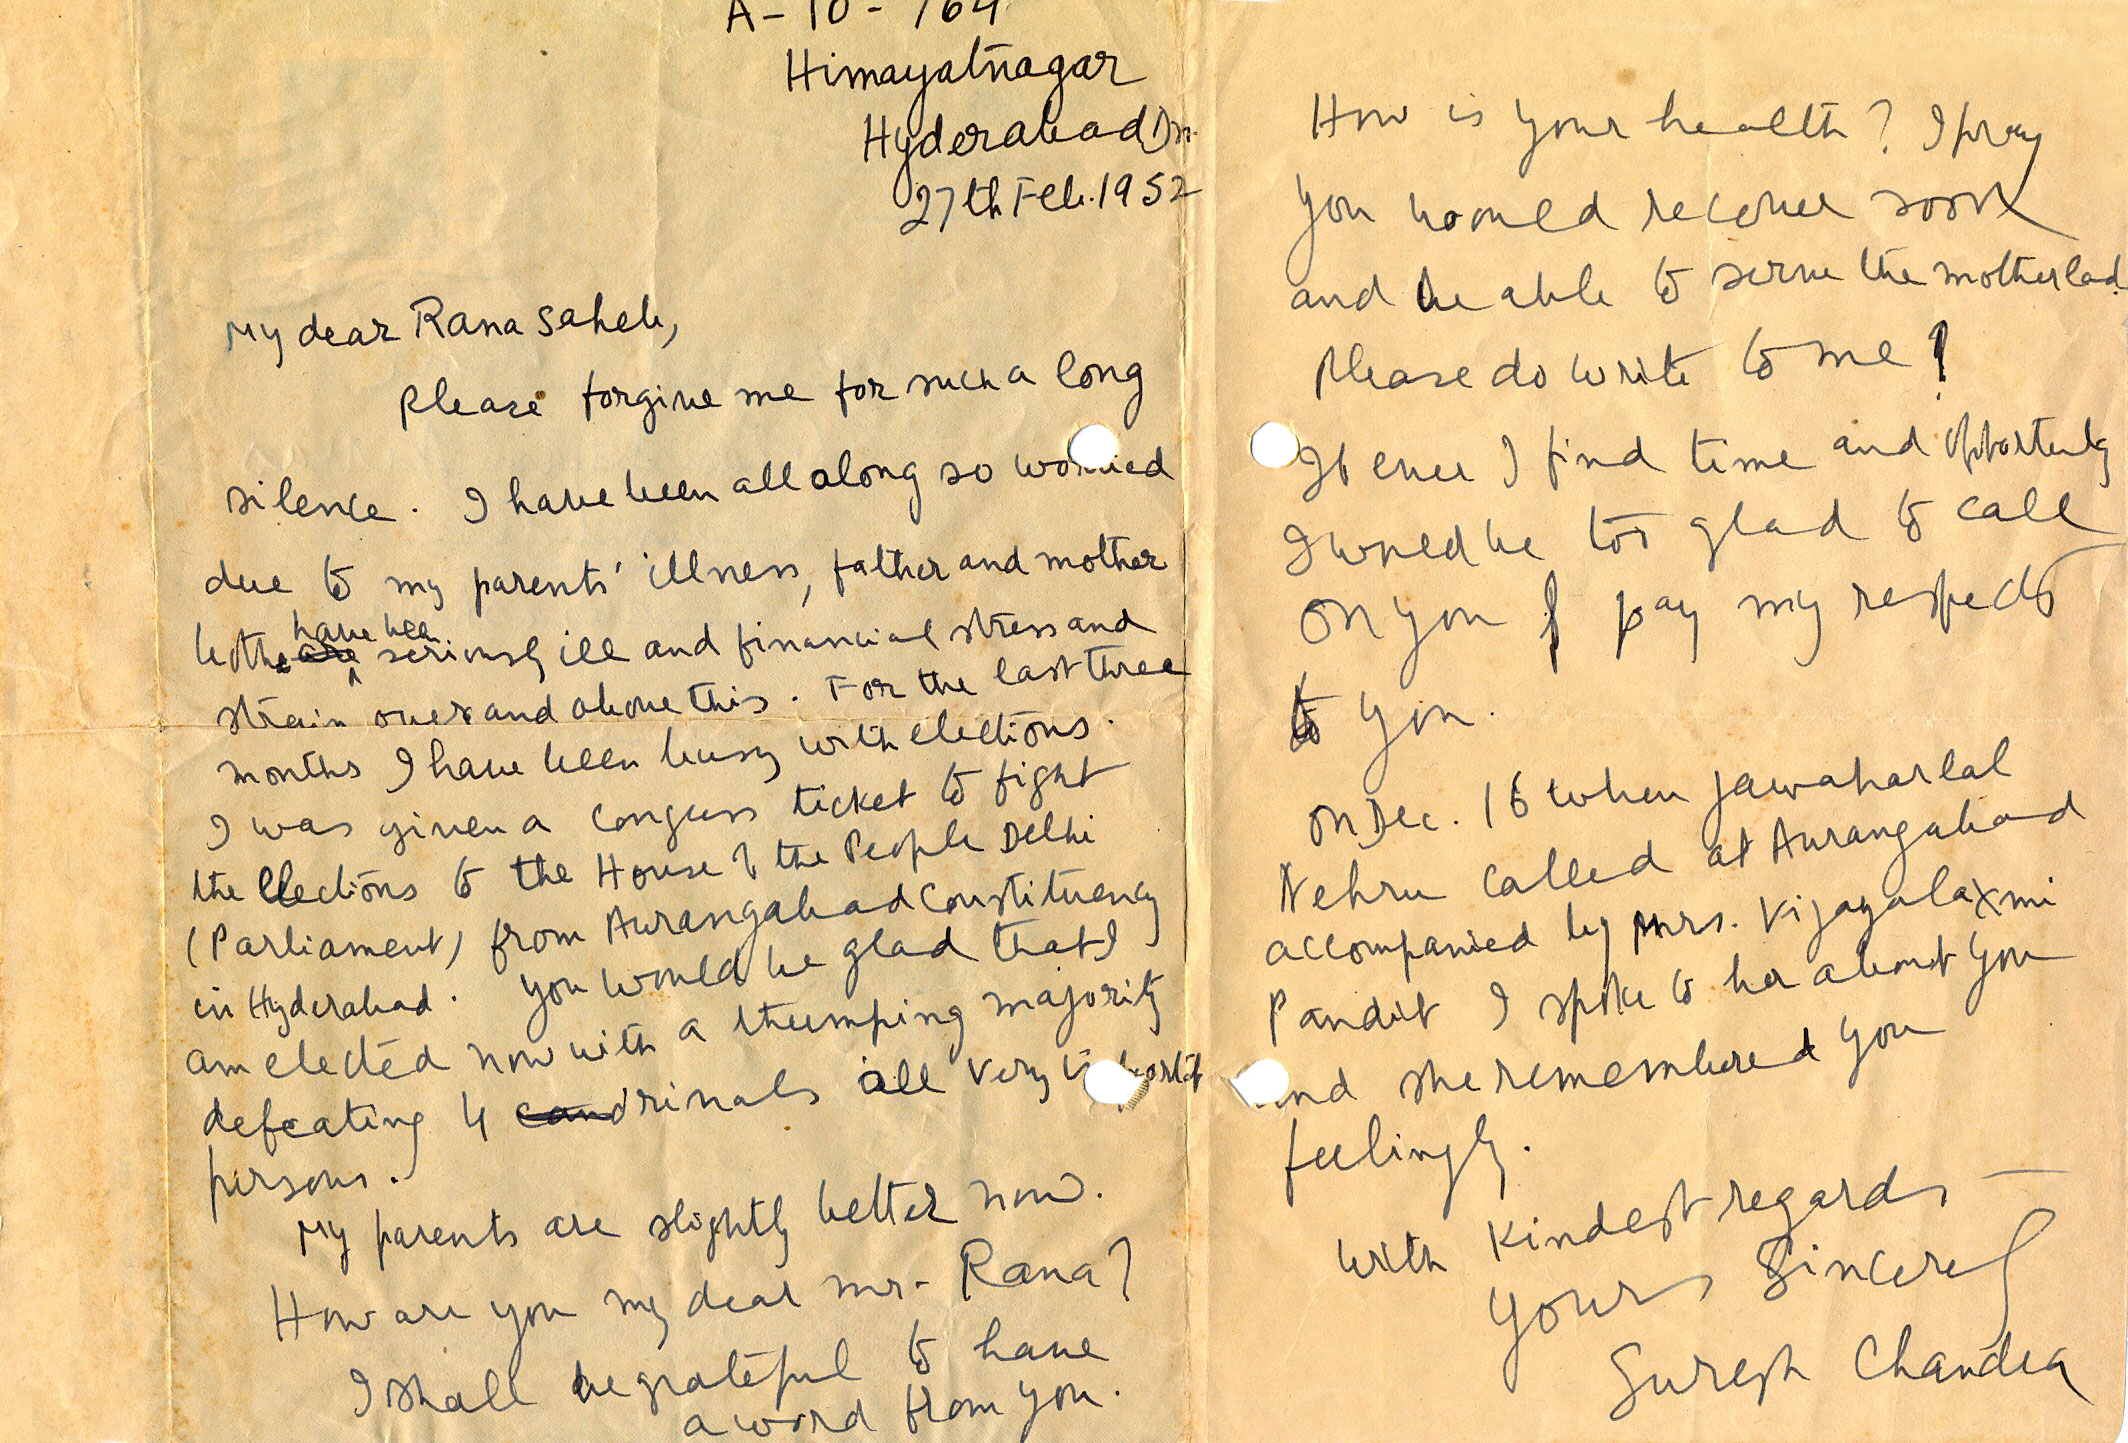 A-10-764
Himayatnagar
Hyderabad Dn.
27th Feb. 1952
My dear Rana Saheb,
Please forgive me for such a long
silence. I have been all along so worried
due to my parents' illness, father and mother
both have been seriously ill and financial stress and
strain over and above this. For the last three
months I have been busy with elections.
I was given a Congress ticket to fight
the Elections to the House of the People Delhi
(Parliament) from Aurangabad Constituency
in Hyderabad. You would be glad that I
am elected now with a thumping majority
defeating 4 rivals all very important
persons.
My parents are slightly better now.
How are you my dear Mr. Rana?
I shall be grateful to have
a word from you.
How is your health? I pray
you would recover soon
and be able to serve the motherlad.
Please do write to me!
If ever I find time and opportunity
I would be too glad to call
on you & pay my respects
to you.
On Dec. 16 when Jawaharlal
Nehru called at Aurangabad
accompanied by Mrs. Vijayalaxmi
Pandit I spoke to her about you
and she remembered you
feelingly.
With kindest regards —
Yours Sincerely
Suresh Chandra